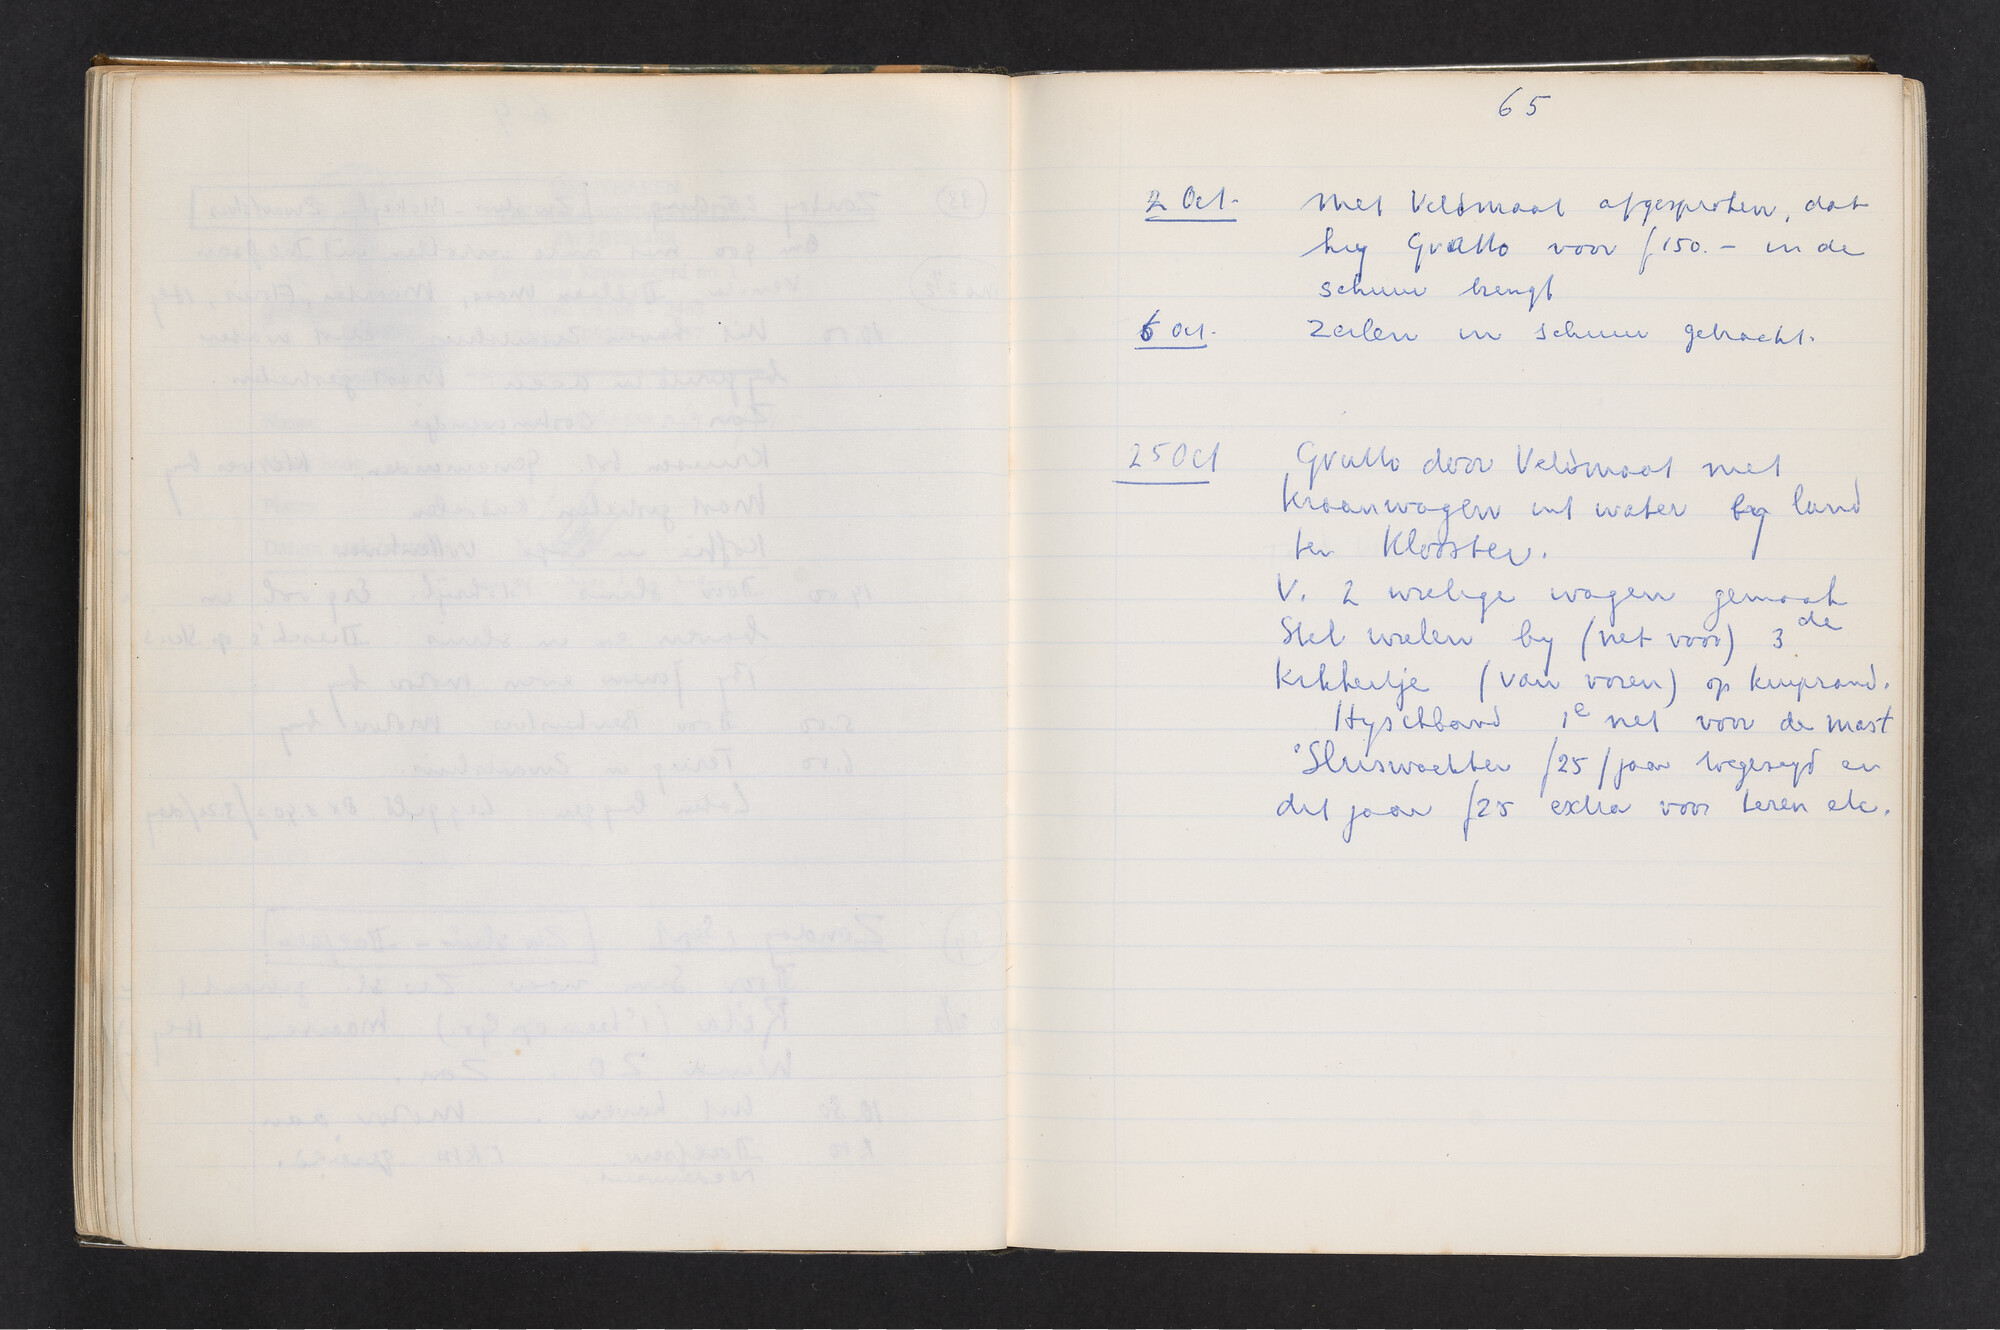 65
2 Oct. Met Veldmaat afgesproken, dat
hij Grutto voor ƒ150.– in de
schuur brengt
6 Oct. Zeilen in schuur gebracht.
25 Oct Grutto door Veldmaat met
kraanwagen uit water by land
ter Klooster.
V. 2 wielige wagen gemaakt
Stel wielen by (net voor) 3de
kikkertje (van voren) op kuiprand.
Hyschband 1e net voor de mast
Sluiswachter ƒ25/jaar toegezegd en
dit jaar ƒ25 extra voor teren etc.